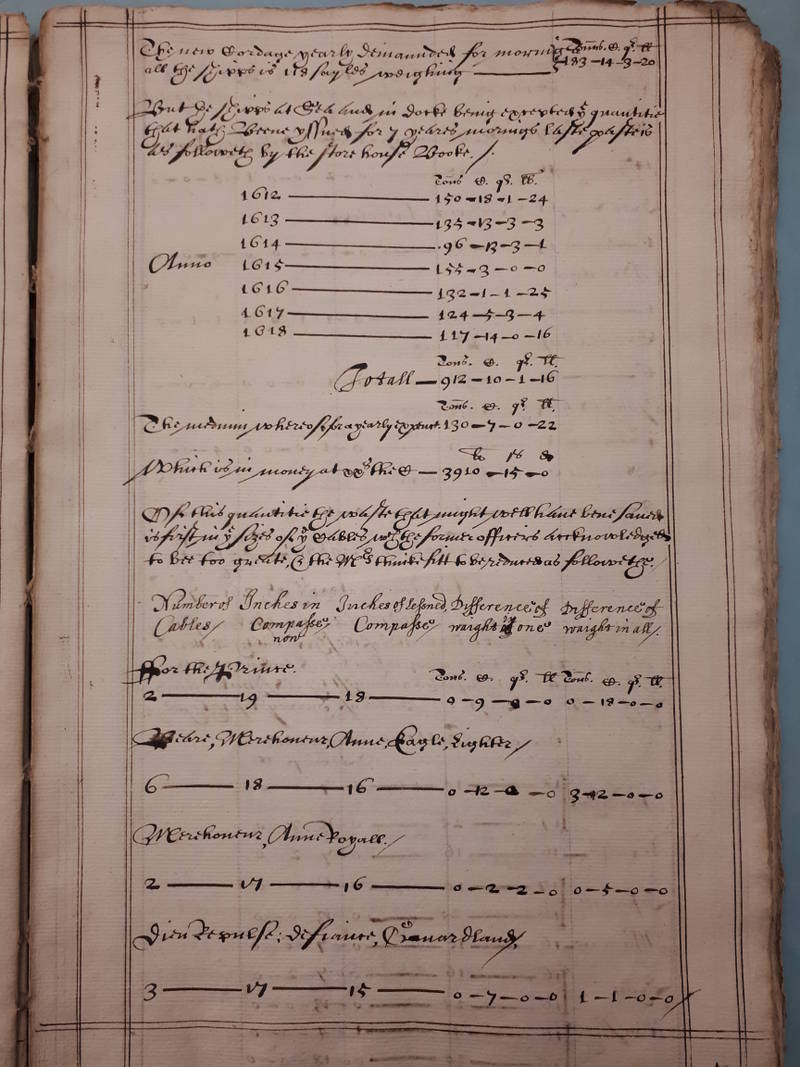 The new Cordage yearly demaunded for mornig Tonns. C. qr. ll
all the shipps is 118 sayles weighing 183-14-3-20
But the shipps at Sea and in docke being excepted ye quantitie
that hath Beene yssued for 7 yeares mornings laste paste is
as followeth by the store house Booke./.
Tons C. qr. ll.
1612 150-18-1-24
1613 135-13-3-3
1614 .96-13-3-1
Anno 1615 155-3-0-0
1616 132-1-1-25
1617 124-5-3-4
1618 117-14-0-16
Tons. C. qr. ll.
Totall 912-10-1-16
Tons. C. qr. ll.
The medium whereof for a yearly expence. 130-7-0-22
li s d
Which is in money at xxxs the C 3910-15-0
Of this quantitie the waste that might well have bene saued
is first in ye sizes of ye Cables wch the former officers acknowledged
to bee too greate, & the Mrs thinke fitt to be reduced as followeth./
Number of Inches in Inches of lessned Difference of Difference of
Cables/ Compasse Compasse/ waight in one waight in all/.
now
ffor the Prince.
Tons. C. qr. ll Tons. C. qr. ll.
2 19 18 0-9-0-0 0-18-0-0
Beare, Merehoneur, Anne, Eagle, Lighter/
6 18 16 0-12-0-0 3-12-0-0
Merehoneur, Anne Royall./
2 17 16 0-2-2-0 0-5-0-0
Dieu Repulse: defiance, Convardland/,
3 17 15 0-7-0-0 1-1-0-0/